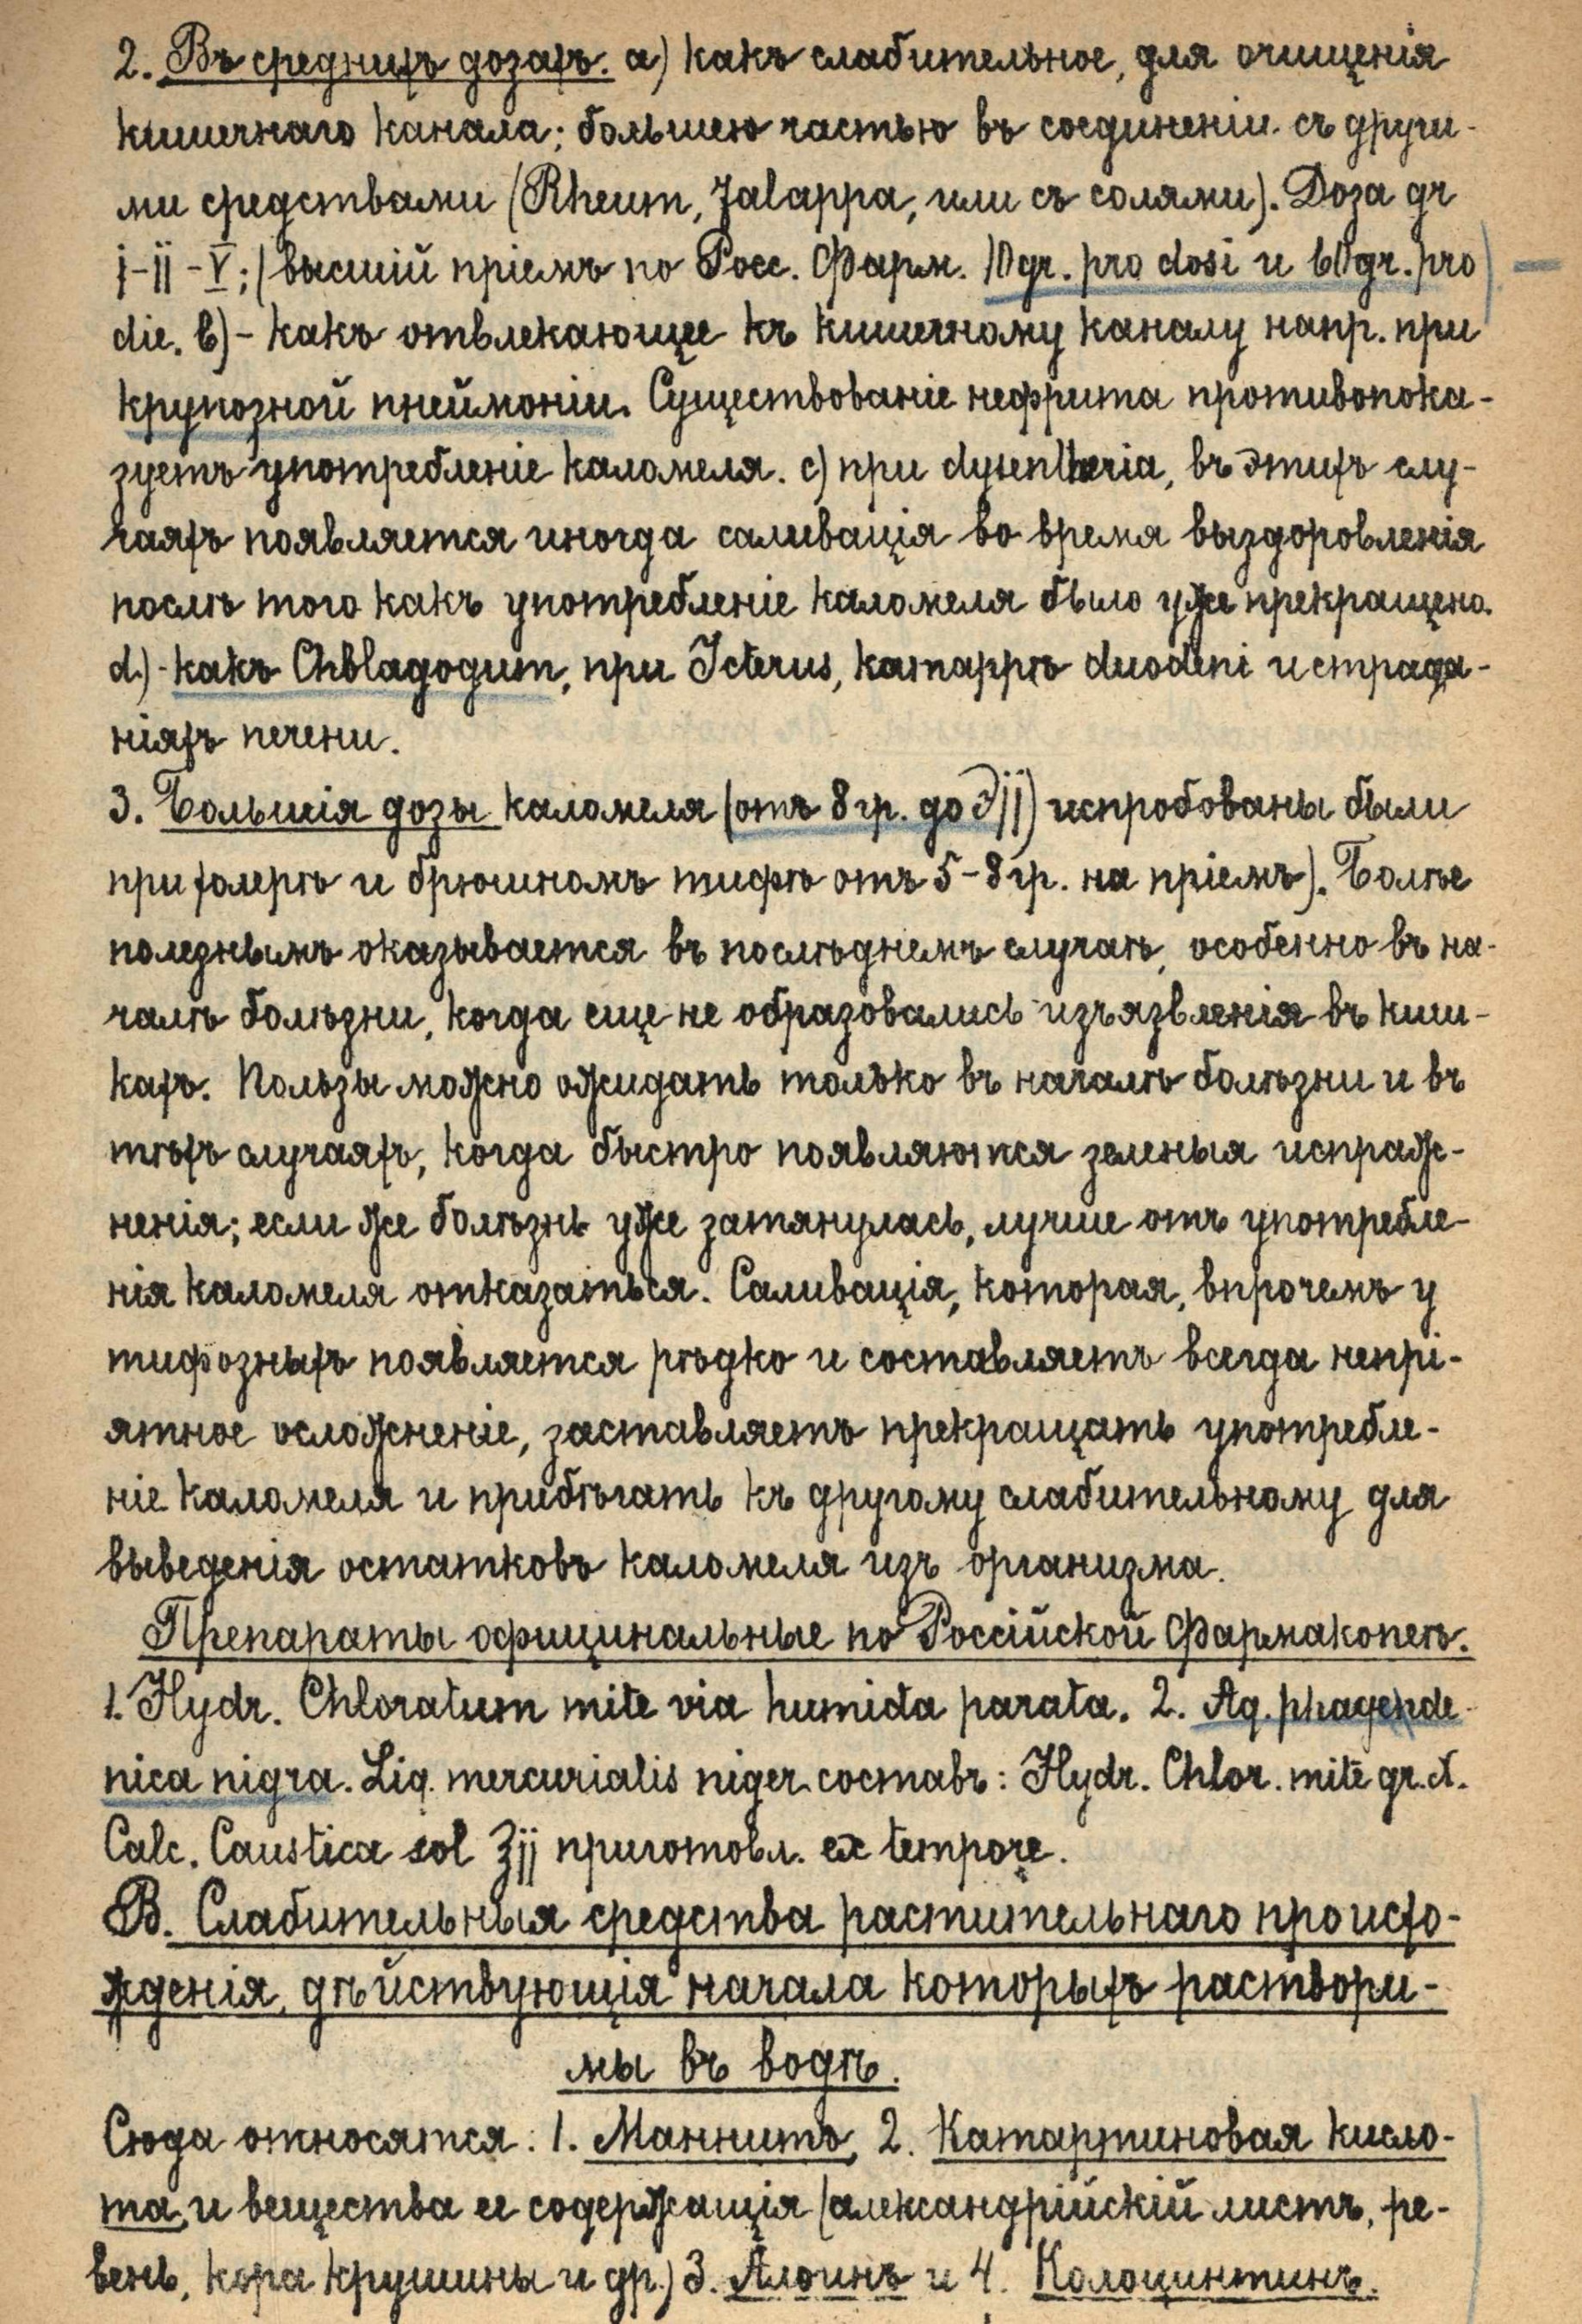 2. Въ среднихъ дозахъ. а) какъ слабительное, для очищенія
кишечнаго канала; большею частью въ соединеніи съ други-
ми средствами (Rheum, Jalappa, или съ солями). Доза gr
j-jj-V; (высшій пріемъ по Росс. Фарм. 10 gr. pro dosi и 60 gr. pro
die. b) - какъ отвлекающее къ кишечному каналу напр. при
крупозной пнеймоніи. Существованіе нефрита противопока-
зуетъ употребленіе каломеля. c) при dysentheria, въ этихъ слу-
чаяхъ появляется иногда саливація во время выздоровленія
послѣ того какъ употребленіе каломеля было уже прекращено.
d) - какъ Cholagogum, при Icterus, катаррѣ duodeni и страда-
ніяхъ печени.
3. Большія дозы каломеля (отъ 8 гр. до ℈jj) испробованы были
при холерѣ и брюшномъ тифѣ отъ 5-8 гр. на пріемъ). Болѣе
полезнымъ оказывается въ послѣднемъ случаѣ, особенно въ на-
чалѣ болѣзни, когда еще не образовались изъязвленія въ киш-
кахъ. Пользы можно ожидать только въ началѣ болѣзни и въ
тѣхъ случаяхъ, когда быстро появляются зеленыя испраж-
ненія; если же болѣзнь уже затянулась, лучше отъ употребле-
нія каломеля отказаться. Саливація, которая, впрочемъ у
тифозныхъ появляется рѣдко и составляетъ всегда непрі-
ятное осложненіе, заставляетъ прекращать употребле-
ніе каломеля и прибѣгать къ другому слабительному для
выведенія остатковъ каломеля изъ организма.
Препараты официнальные по Россійской Фармакопеѣ.
1. Hydr. Chloratum mite via humida parata. 2. Aq. phagende-
nica nigra. Liq. mercurialis niger составъ: Hydr. Chlor. mite gr. X.
Calc. Caustica sol ℥jj приготовл. ex tempore.
В. Слабительныя средства растительнаго происхо-
жденія, дѣйствующія начала которыхъ раствори-
мы въ водѣ.
Сюда относятся: 1. Маннитъ, 2. Катартиновая кисло-
та и вещества ее содержащія (александрійскій листъ, ре-
вень, кора крушины и др.) 3. Алоинъ и 4. Колоцинтинъ.